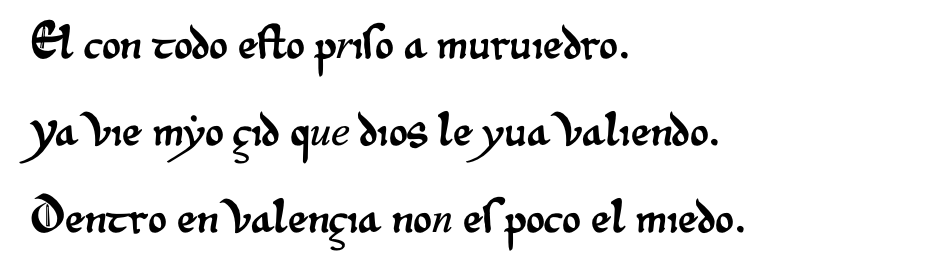 El con todo eſto priſo a muruiedro.
ya vie mẏo çid que dios le yua valiendo.
Dentro en valençia non eſ poco el miedo.